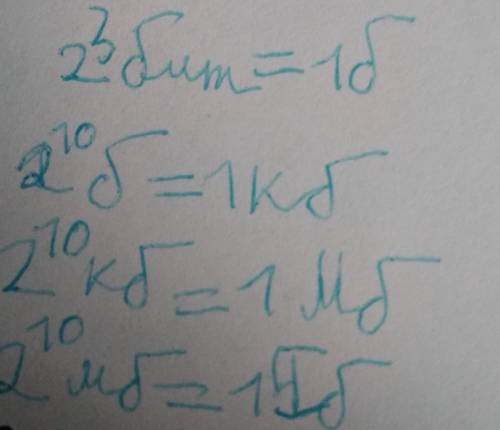 2³ бит = 1б
2¹⁰ б = 1кб
2¹⁰ кб = 1 Мб
2¹⁰ мб = 1Гб